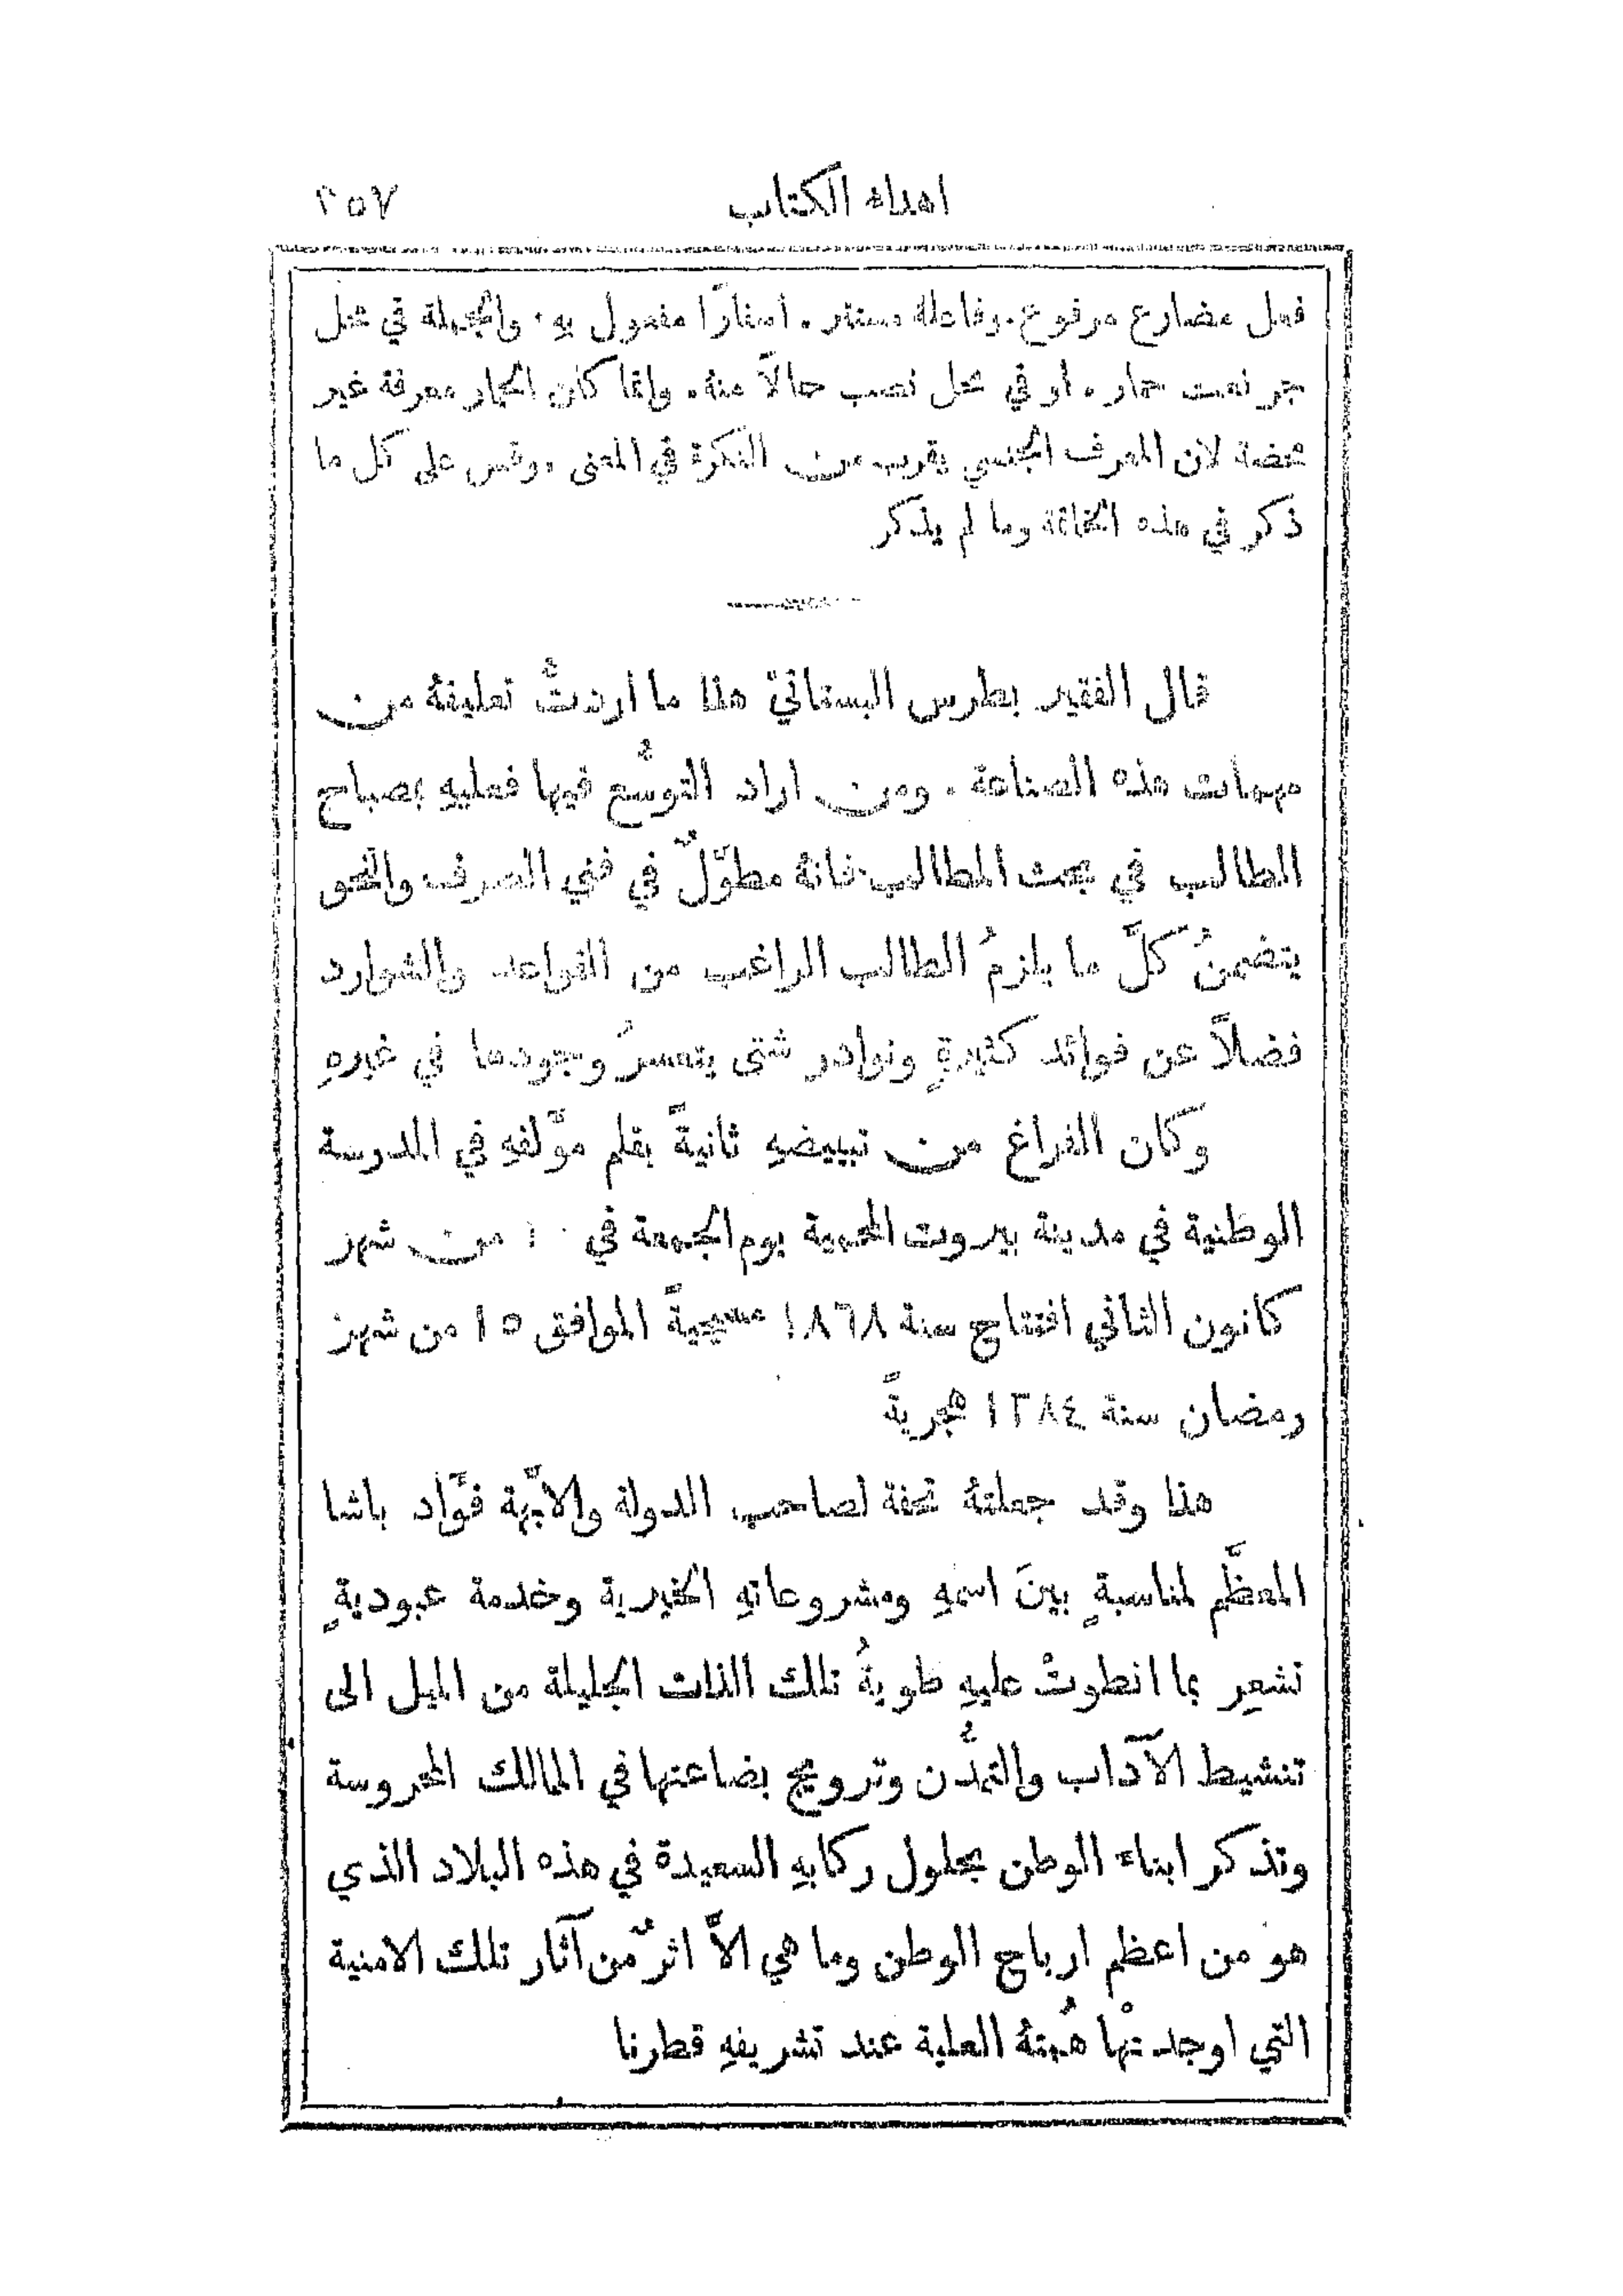 اهداء الكتاب ٣٥٧
فعل مضارع مرفوع. وفاعلهُ مستتر. اسفارًا مفعول به. والجملة في محل
جر نعت حمار. او في محل نصب حالاً منهُ. وانما كان الحمار معرفة غير
محضة لان المعرف الجنسي يقرب من النكرة في المعنى. وقس على كل ما
ذكر في هذه الخاتمة وما لم يذكر
قال الفقير بطرس البستانيّ هذا ما اردتُّ تعليقهُ من
مهمات هذه الصناعة. ومن اراد التوسُّع فيها فعليهِ بمصباح
الطالب في بحث المطالب. فانهُ مطوَّلٌ في فني الصرف والنحو
يتضمنُ كلَّ ما يلزمُ الطالب الراغب من القواعد والشوارد
فضلاً عن فوائد كثيرةٍ ونوادر شتى يتعسرُ وجودها في غيرهِ
وكان الفراغ من تبييضهِ ثانيةً بقلم مؤَّلفهِ في المدرسة
الوطنية في مدينة بيروت المحمية يوم الجمعة في من شهر
كانون الثاني افتتاح سنة ١٨٦٨ مسيحيةً الموافق ١٥ من شهر
رمضان سنة ١٢٨٤ هجريةً
هذا وقد جعلتهُ تحفة لصاحب الدولة والابَّهة فؤَاد باشا
المعظَّم لمناسبةٍ بينَ اسمهِ ومشروعاتهِ الخيرية وخدمة عبوديةٍ
تشعِر بما انطوتْ عليهِ طويةُ تلك الذات الجليلة من الميل الى
تنشيط الآداب والتمدُّن وترويج بضاعتها في الممالك المحروسة
وتذكر ابناء الوطن بحلول ركابهِ السعيدة في هذه البلاد الذي
هو من اعظم ارباح الوطن وما هي الاَّ اثرٌ من آثار تلك الامنية
التي اوجدتْها هُمتهُ العلية عند تشريفهِ قطرنا